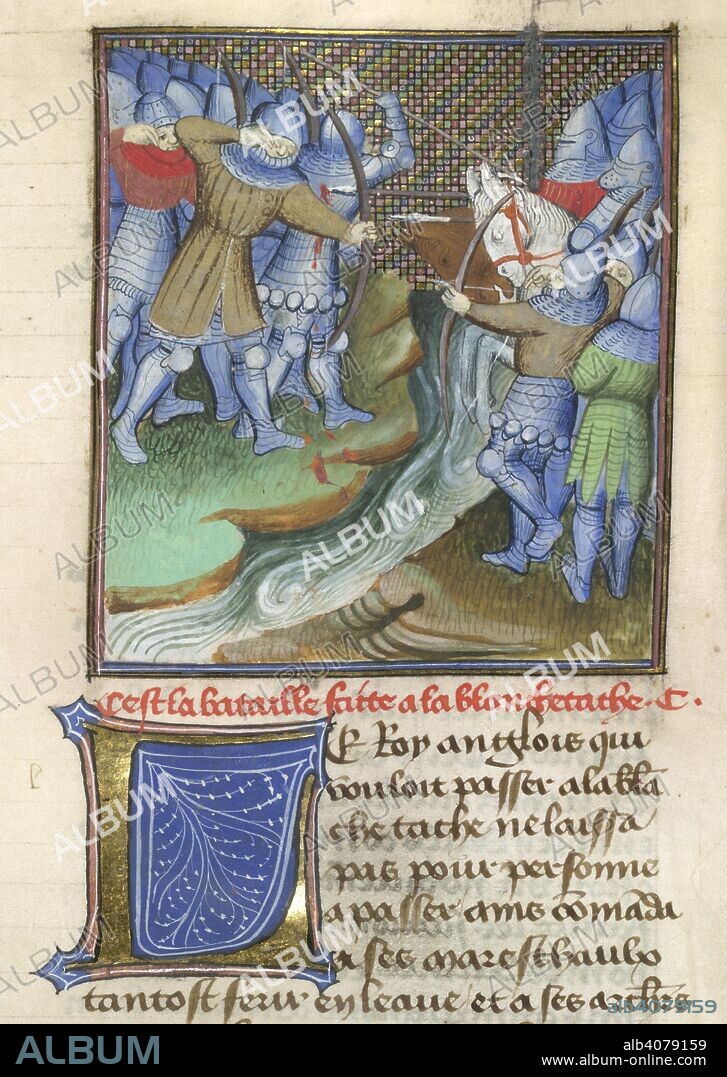 Cest la bataille faitte a la blonchetache. C.
Le Roy anglois qui
vouloit passer a la bla
che tache ne laissa
pas pour personne
a passer ains comada
a ses mareschaulx
tantost ferir en leaue et a ses archers
ALBUM
alb4079159
alb4079159
www.album-online.com